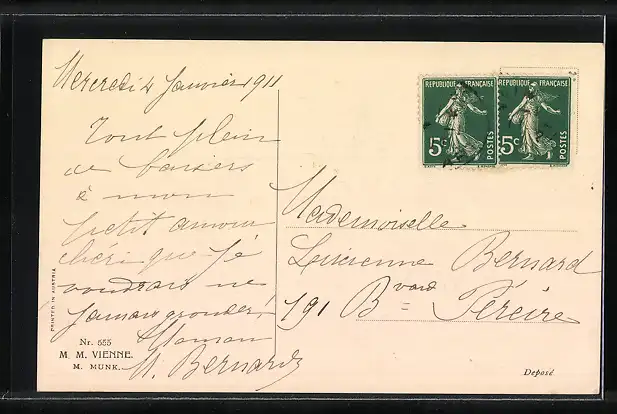 Mercredi 4 Janvier 1911
Tout plein
de baisers
à mon
petit amour
chéri que je
voudrais ne
jamais gronder!
Maman
M. Bernard
REPUBLIQUE FRANÇAISE
5c POSTES
REPUBLIQUE FRANÇAISE
5c POSTES
Mademoiselle
Lucienne Bernard
191 Bvard Péreire
PRINTED IN AUSTRIA
Nr. 555
M. M. VIENNE.
M. MUNK.
Deposé